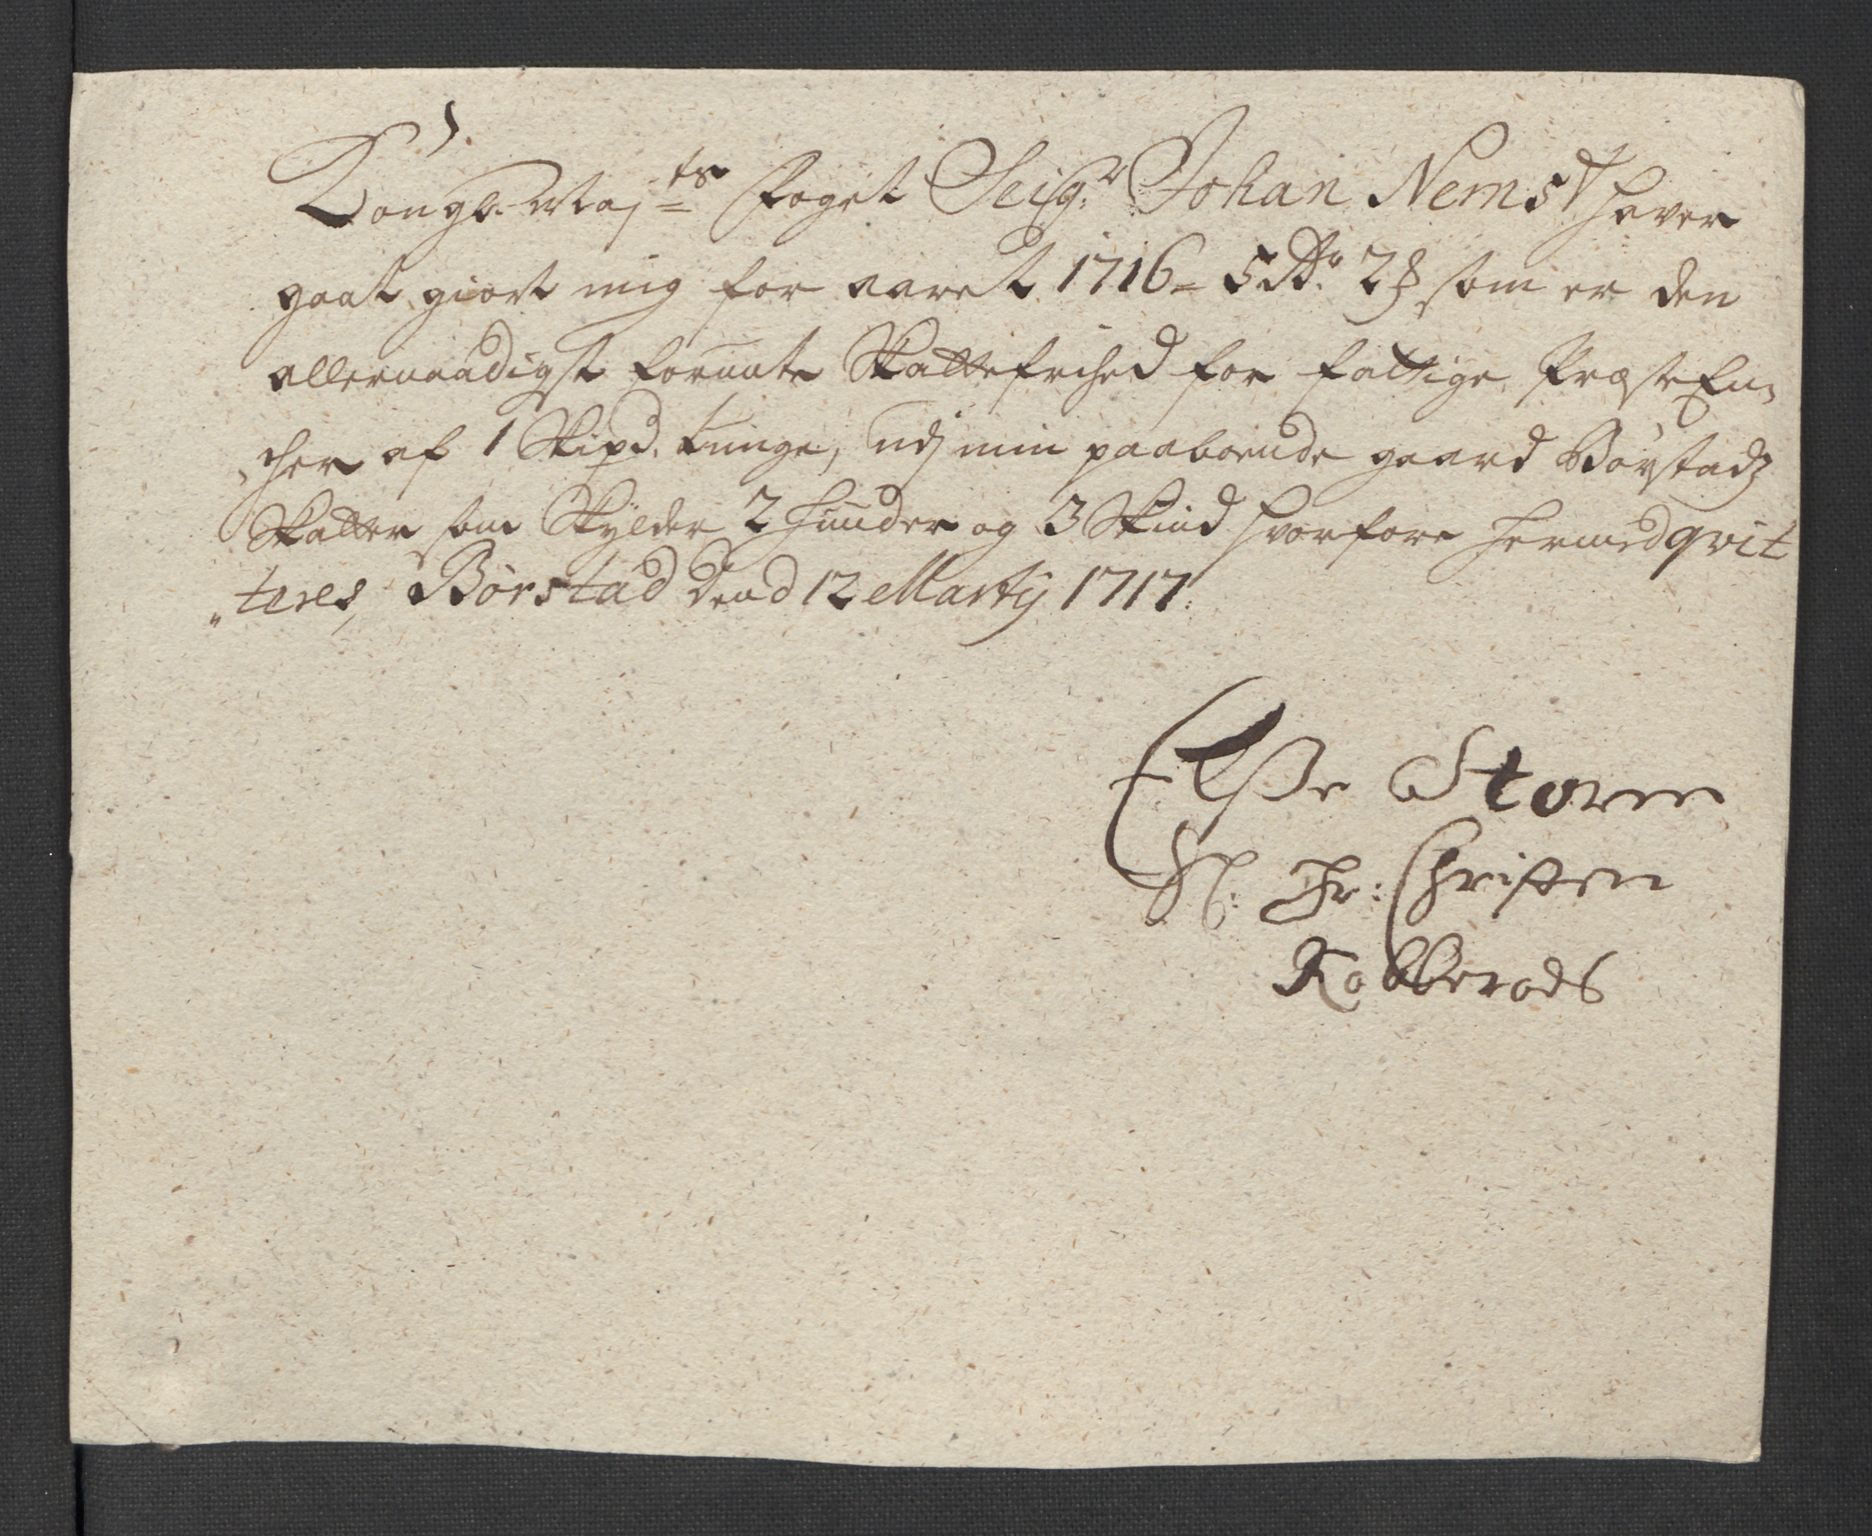 Kongl. Maj:ts Foget Seigr. Johan Nemst hafver
gaat giort mig for aaret 1716 - 5 Rdr. 2 ß som er den
allernaadigst forunte Skattefrihed for fattige Præste En,
,cher af 1 Skipd. tunge, udj min paaboende gaard Børstadz
Skatter som Skylder 2 huuder og 3 Skind hvorfore hermed qvit
"teres, Børstad dend 12 Martij 1717.
Elsse Storm
Sl. Hr: Christen
Kobberøds